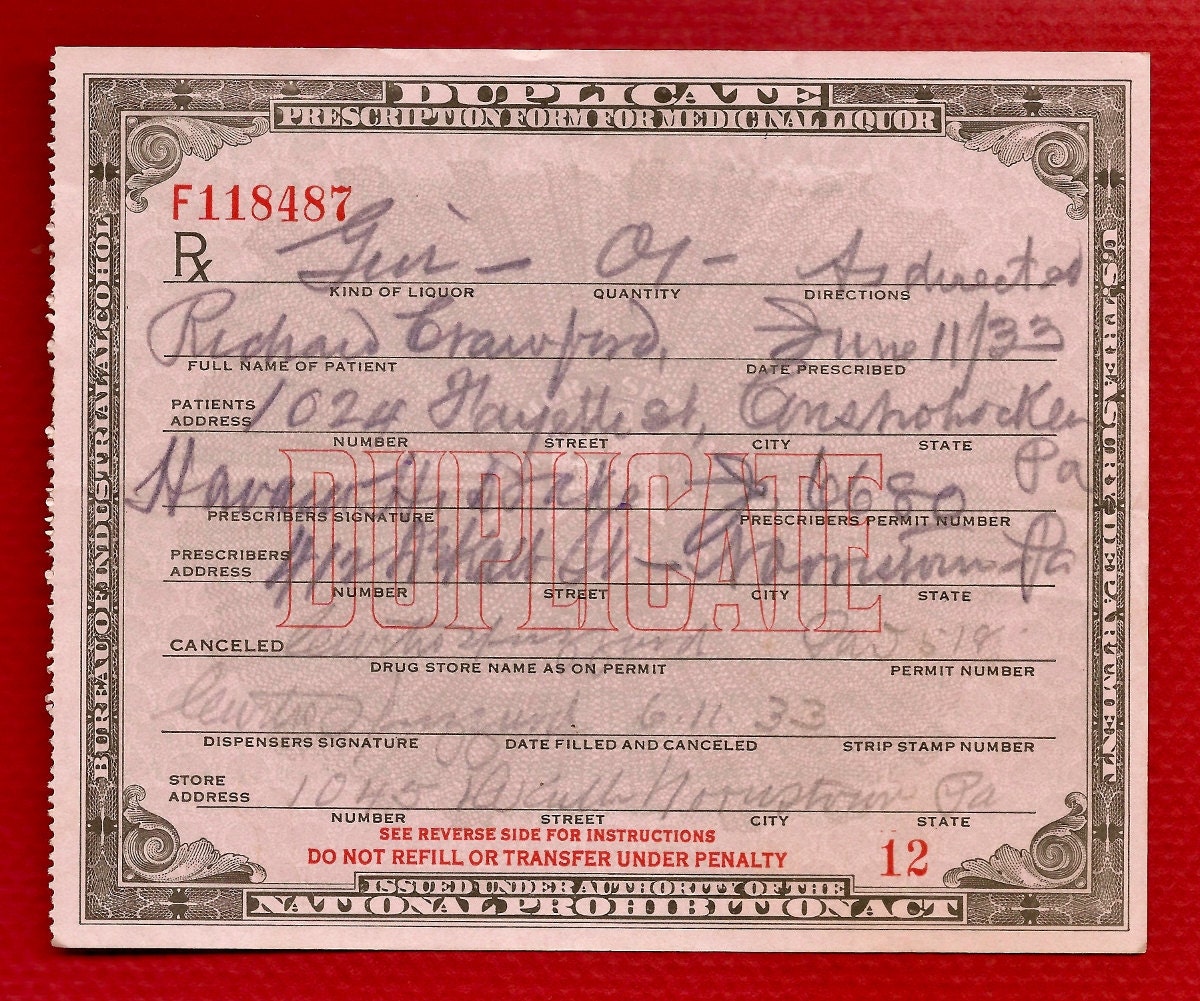 DUPLICATE
PRESCRIPTION FORM FOR MEDICINAL LIQUOR
BUREAU OF INDUSTRIAL ALCOHOL
U.S. TREASURY DEPARTMENT
F118487
Rx Gin - - As directed
KIND OF LIQUOR QUANTITY DIRECTIONS
Richard Crawford, June 11/33
FULL NAME OF PATIENT DATE PRESCRIBED
PATIENTS ADDRESS 1024 Fayette st, Conshohocken
NUMBER STREET CITY STATE
Pa
6680
PRESCRIBERS SIGNATURE PRESCRIBERS PERMIT NUMBER
DUPLICATE
PRESCRIBERS ADDRESS Norristown Pa
NUMBER STREET CITY STATE
CANCELED
DRUG STORE NAME AS ON PERMIT PERMIT NUMBER
6 11 33
DISPENSERS SIGNATURE DATE FILLED AND CANCELED STRIP STAMP NUMBER
STORE ADDRESS Norristown Pa
NUMBER STREET CITY STATE
SEE REVERSE SIDE FOR INSTRUCTIONS
DO NOT REFILL OR TRANSFER UNDER PENALTY 12
ISSUED UNDER AUTHORITY OF THE
NATIONAL PROHIBITION ACT